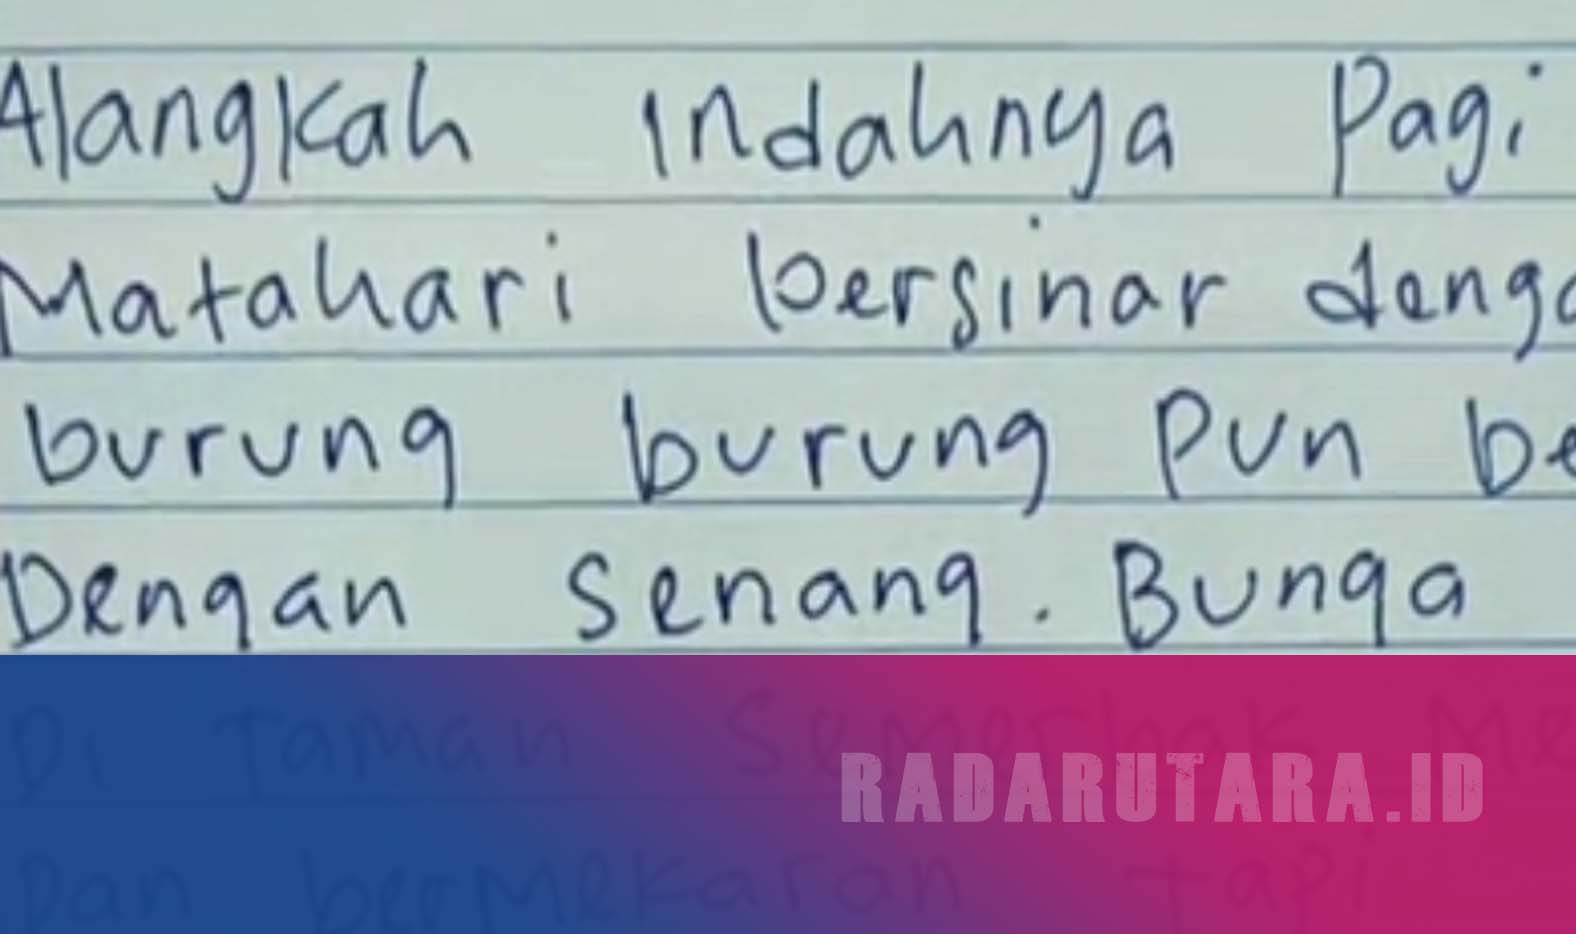 Alangkah Indahnya Pagi
Matahari bersinar denga
burung burung Pun be
Dengan Senang. Bunga
Di taman Semerbak Me
RADARUTARA.ID
Dan berMekaran tapi